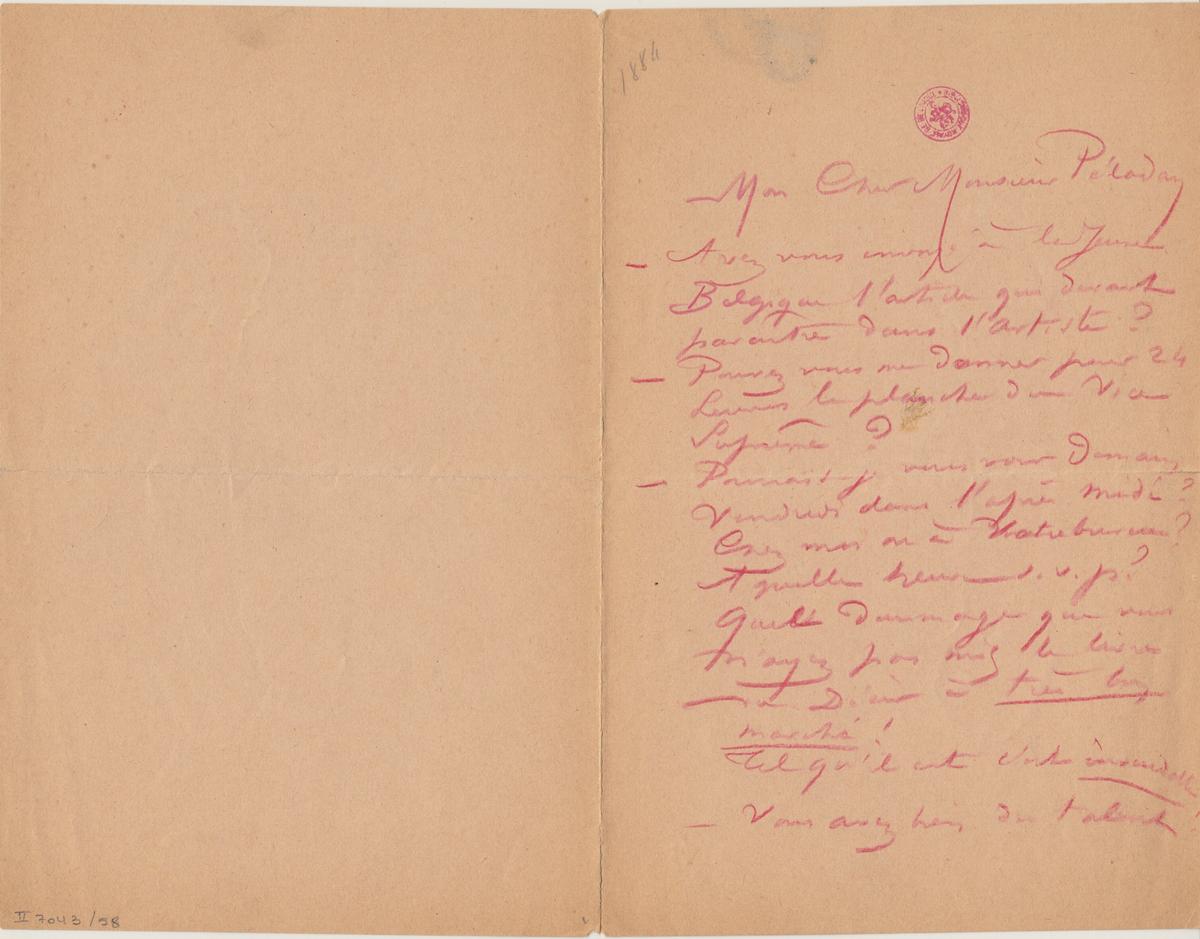 1884
BIBLIOTHEQUE ROYALE DE BELGIQUE
Mon Cher Monsieur Péladan
— Avez vous envoyé à la Jeune
Belgique l'article qui devait
paraître dans l'Artiste ?
— Pouvez vous me donner pour 24
heures la planche du Vice
Suprême ?
— Pourrais-je vous voir demain
Vendredi dans l'après midi ?
Chez moi ou à Votre bureau ?
A quelle heure s. v. p ?
Quel dommage que vous
n'ayez pas mis le livre
à très bon
marché !
Tel qu'il est c'est invendable !
— Vous avez bien du talent
II 7043/58